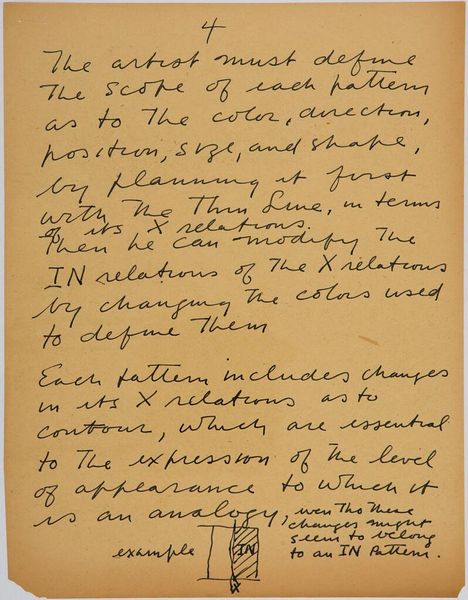 4
The artist must define
The scope of each pattern
as to The color, direction,
position, size, and shape,
by planning it first
with The Thin Line, in terms
of its X relations.
Then he can modify The
IN relations of The X relations
by changing The colors used
to define Them
Each pattern includes changes
in its X relations as to
contour, which are essential
to The expression of The level
of appearance to which it
is an analogy, even Tho These
changes might
seem to belong
to an IN Pattern.
example
IN
X